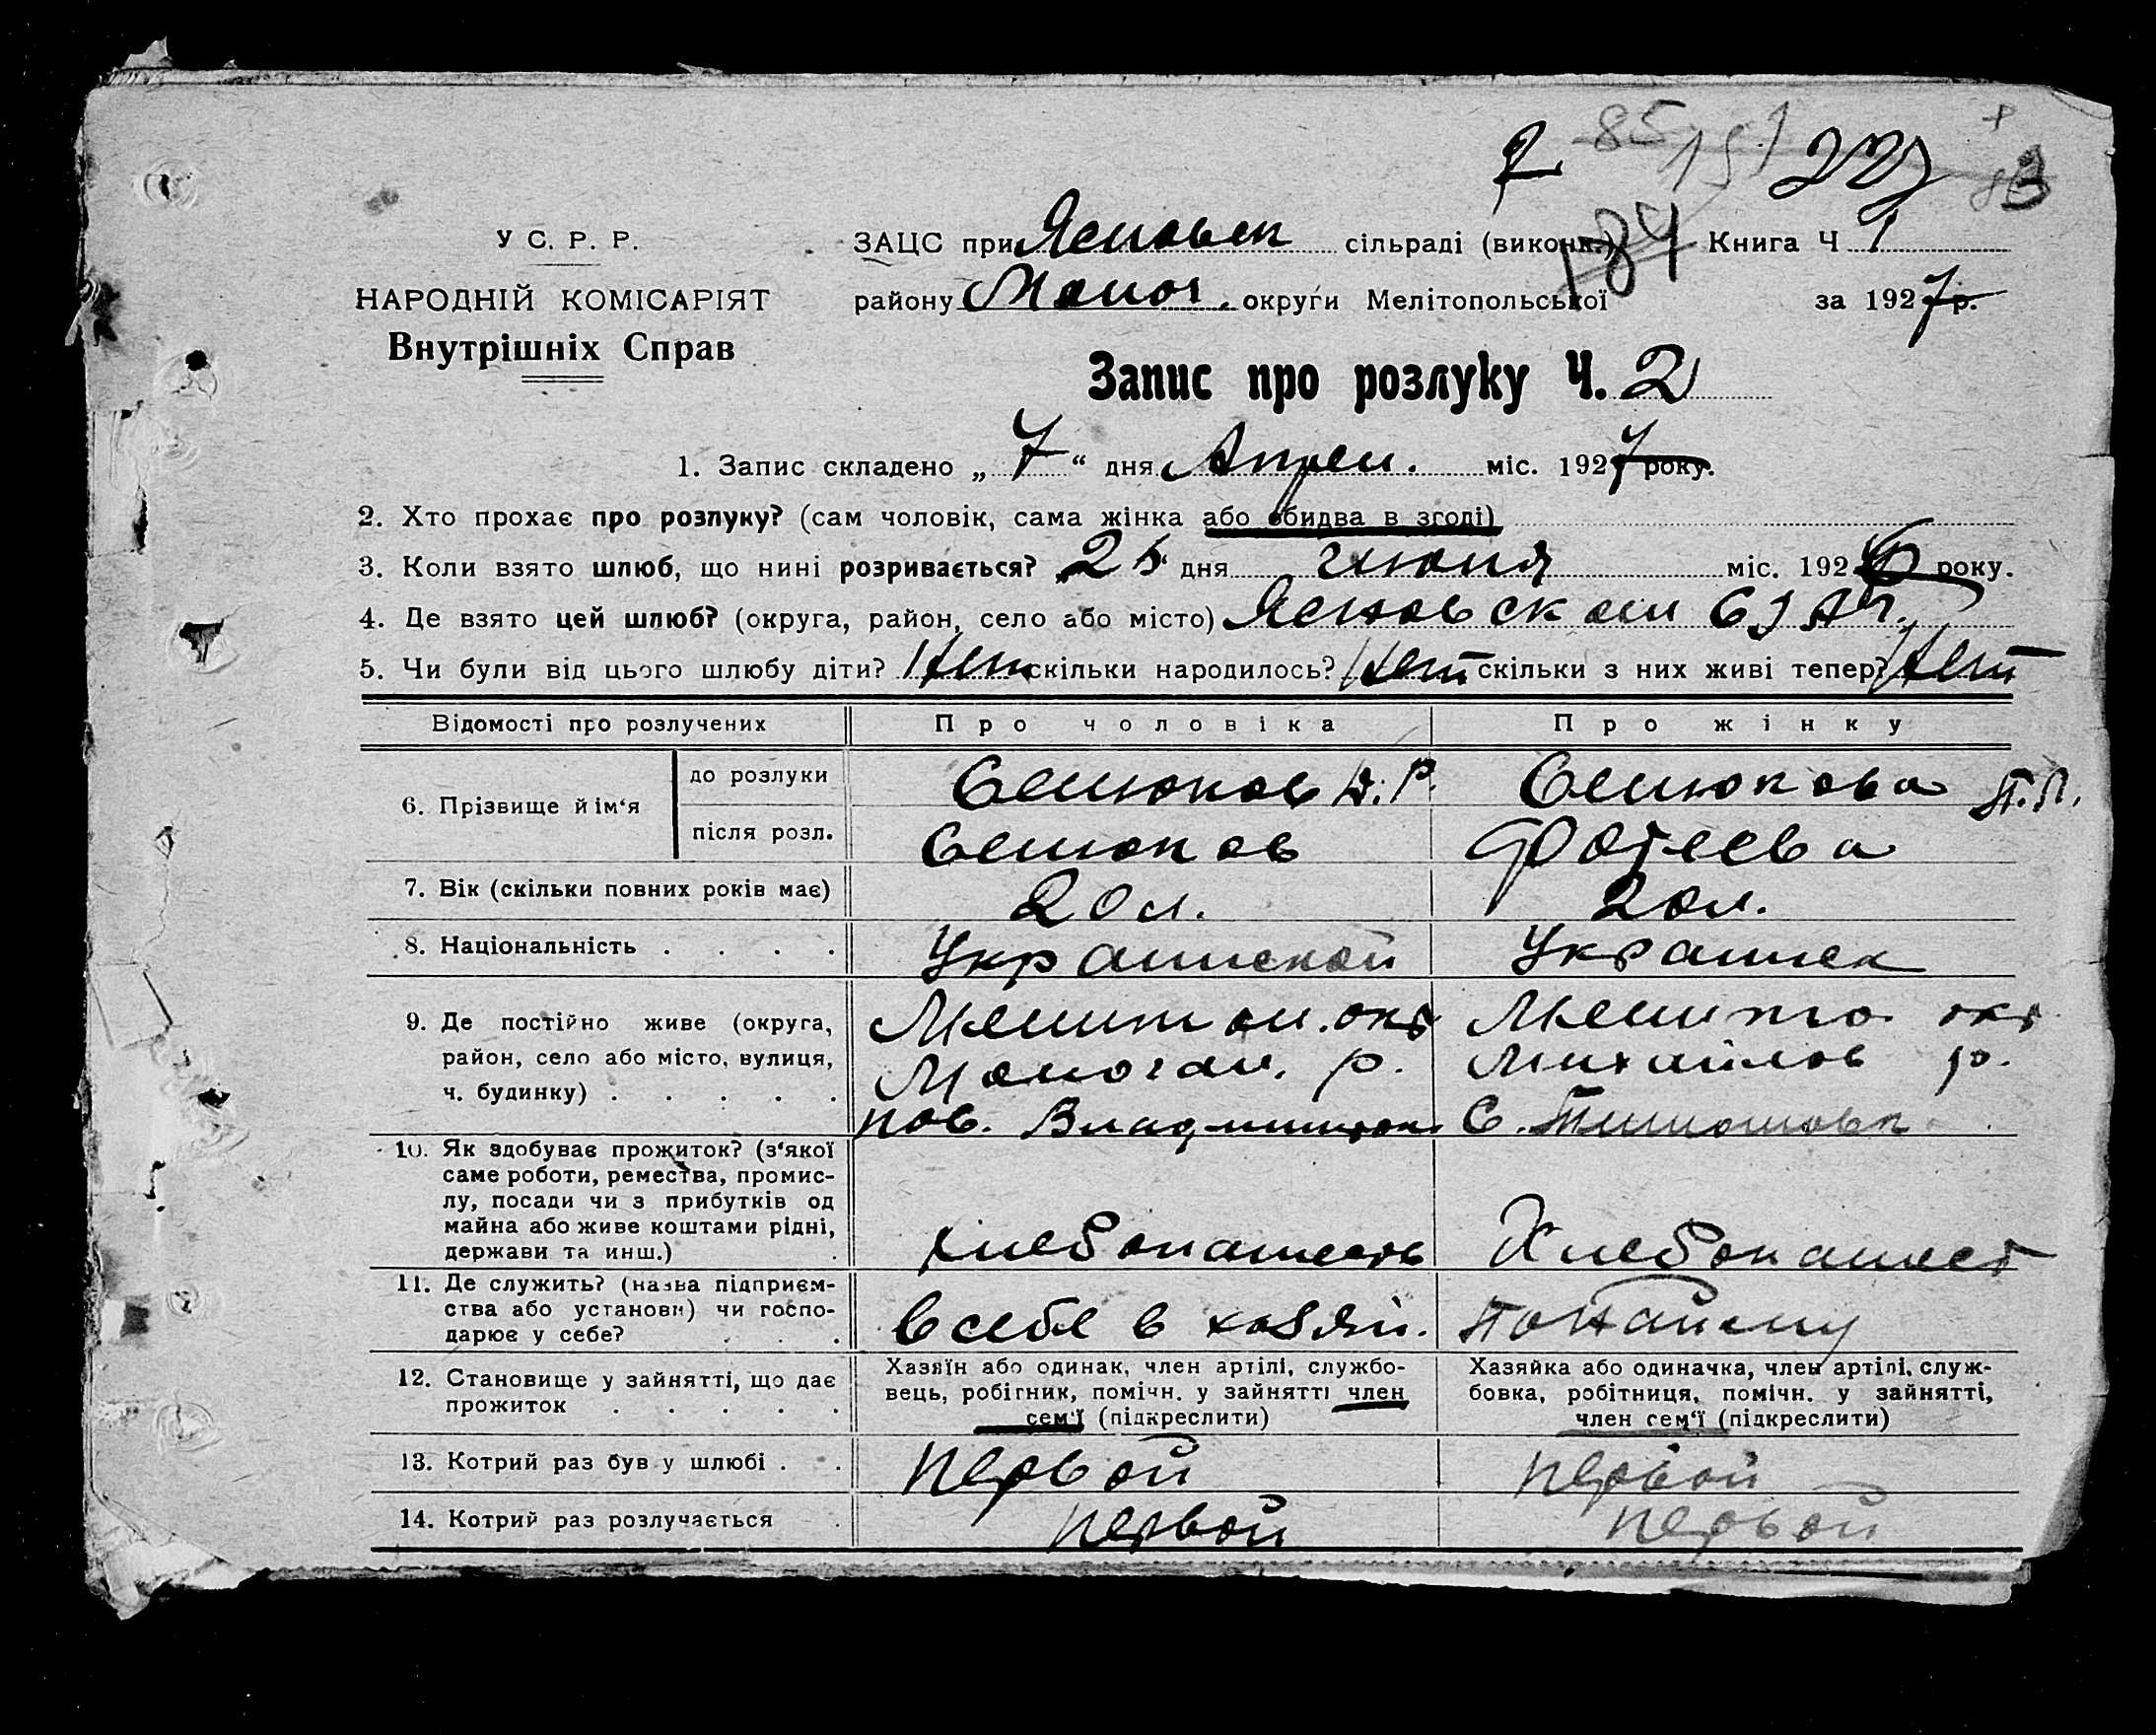 85 151 223 83
У С. Р. Р.
НАРОДНІЙ КОМІСАРІЯТ
Внутрішніх Справ
184
ЗАЦС при Ясновск сільраді (виконк.) Книга Ч 1
району округи Мелітопольської за 1927 р.
Запис про розлуку Ч. 2
1. Запис складено „ 7 “ дня Апрел. міс. 1927 року.
2. Хто прохає про розлуку? (сам чоловік, сама жінка або обидва в згоді)
3. Коли взято шлюб, що нині розривається? дня июня міс. 1926 року.
4. Де взято цей шлюб? (округа, район, село або місто) Ясновском
5. Чи були від цього шлюбу діти? Нет скільки народилось? Нет скільки з них живі тепер? Нет
Відомості про розлучених Про чоловіка Про жінку
6. Прізвище й ім‘я
до розлуки Семюков Семюкова П.Л.
після розл. Семюков Фотеева
7. Вік (скільки повних років має) 20 л. 20 л.
8. Національність . . . . Украинской Украинск
9. Де постійно живе (округа, Мелитоп. окр Мелито. окр
район, село або місто, вулиця, р. Михайлов р.
ч. будинку) . . . . . пос. Владимировк С. Тимошовк
10. Як здобуває прожиток? (з‘якої
саме роботи, ремества, промис-
лу, посади чи з прибутків од
майна або живе коштами рідні,
держави та инш.) . хлебопашеств Хлебопашест
11. Де служить? (назва підприєм-
ства або установи) чи госпо-
дарює у себе? . . . в себе в хозяй. По найему
12. Становище у зайнятті, що дає
прожиток . . . . .
Хазяїн або одинак, член артілі, службо-
вець, робітник, помічн. у зайнятті член
сем‘ї (підкреслити)
Хазяйка або одиначка, член артілі, служ-
бовка, робітниця, помічн. у зайнятті,
член сем‘ї (підкреслити)
13. Котрий раз був у шлюбі . . первой первой
14. Котрий раз розлучається . первой первой